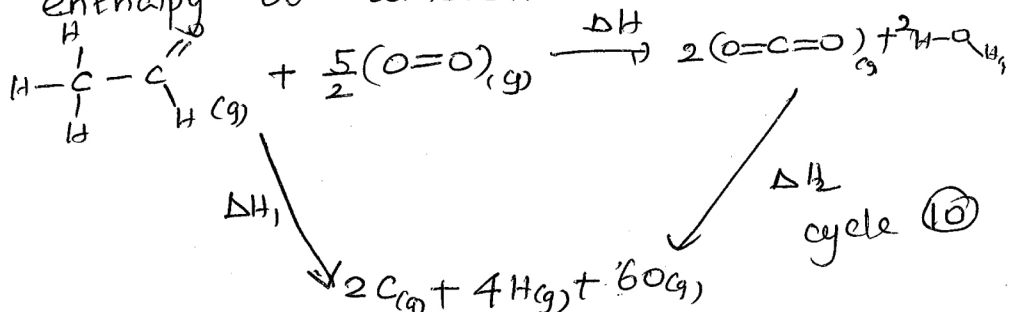 enthalpy
H O
H—C—C + 5/2(O=O)(g) ΔH→ 2(O=C=O)(g) + 2H—O
H H (g) H(g)
ΔH₁ ΔH₂
cycle 10
2C(g) + 4H(g) + 6O(g)